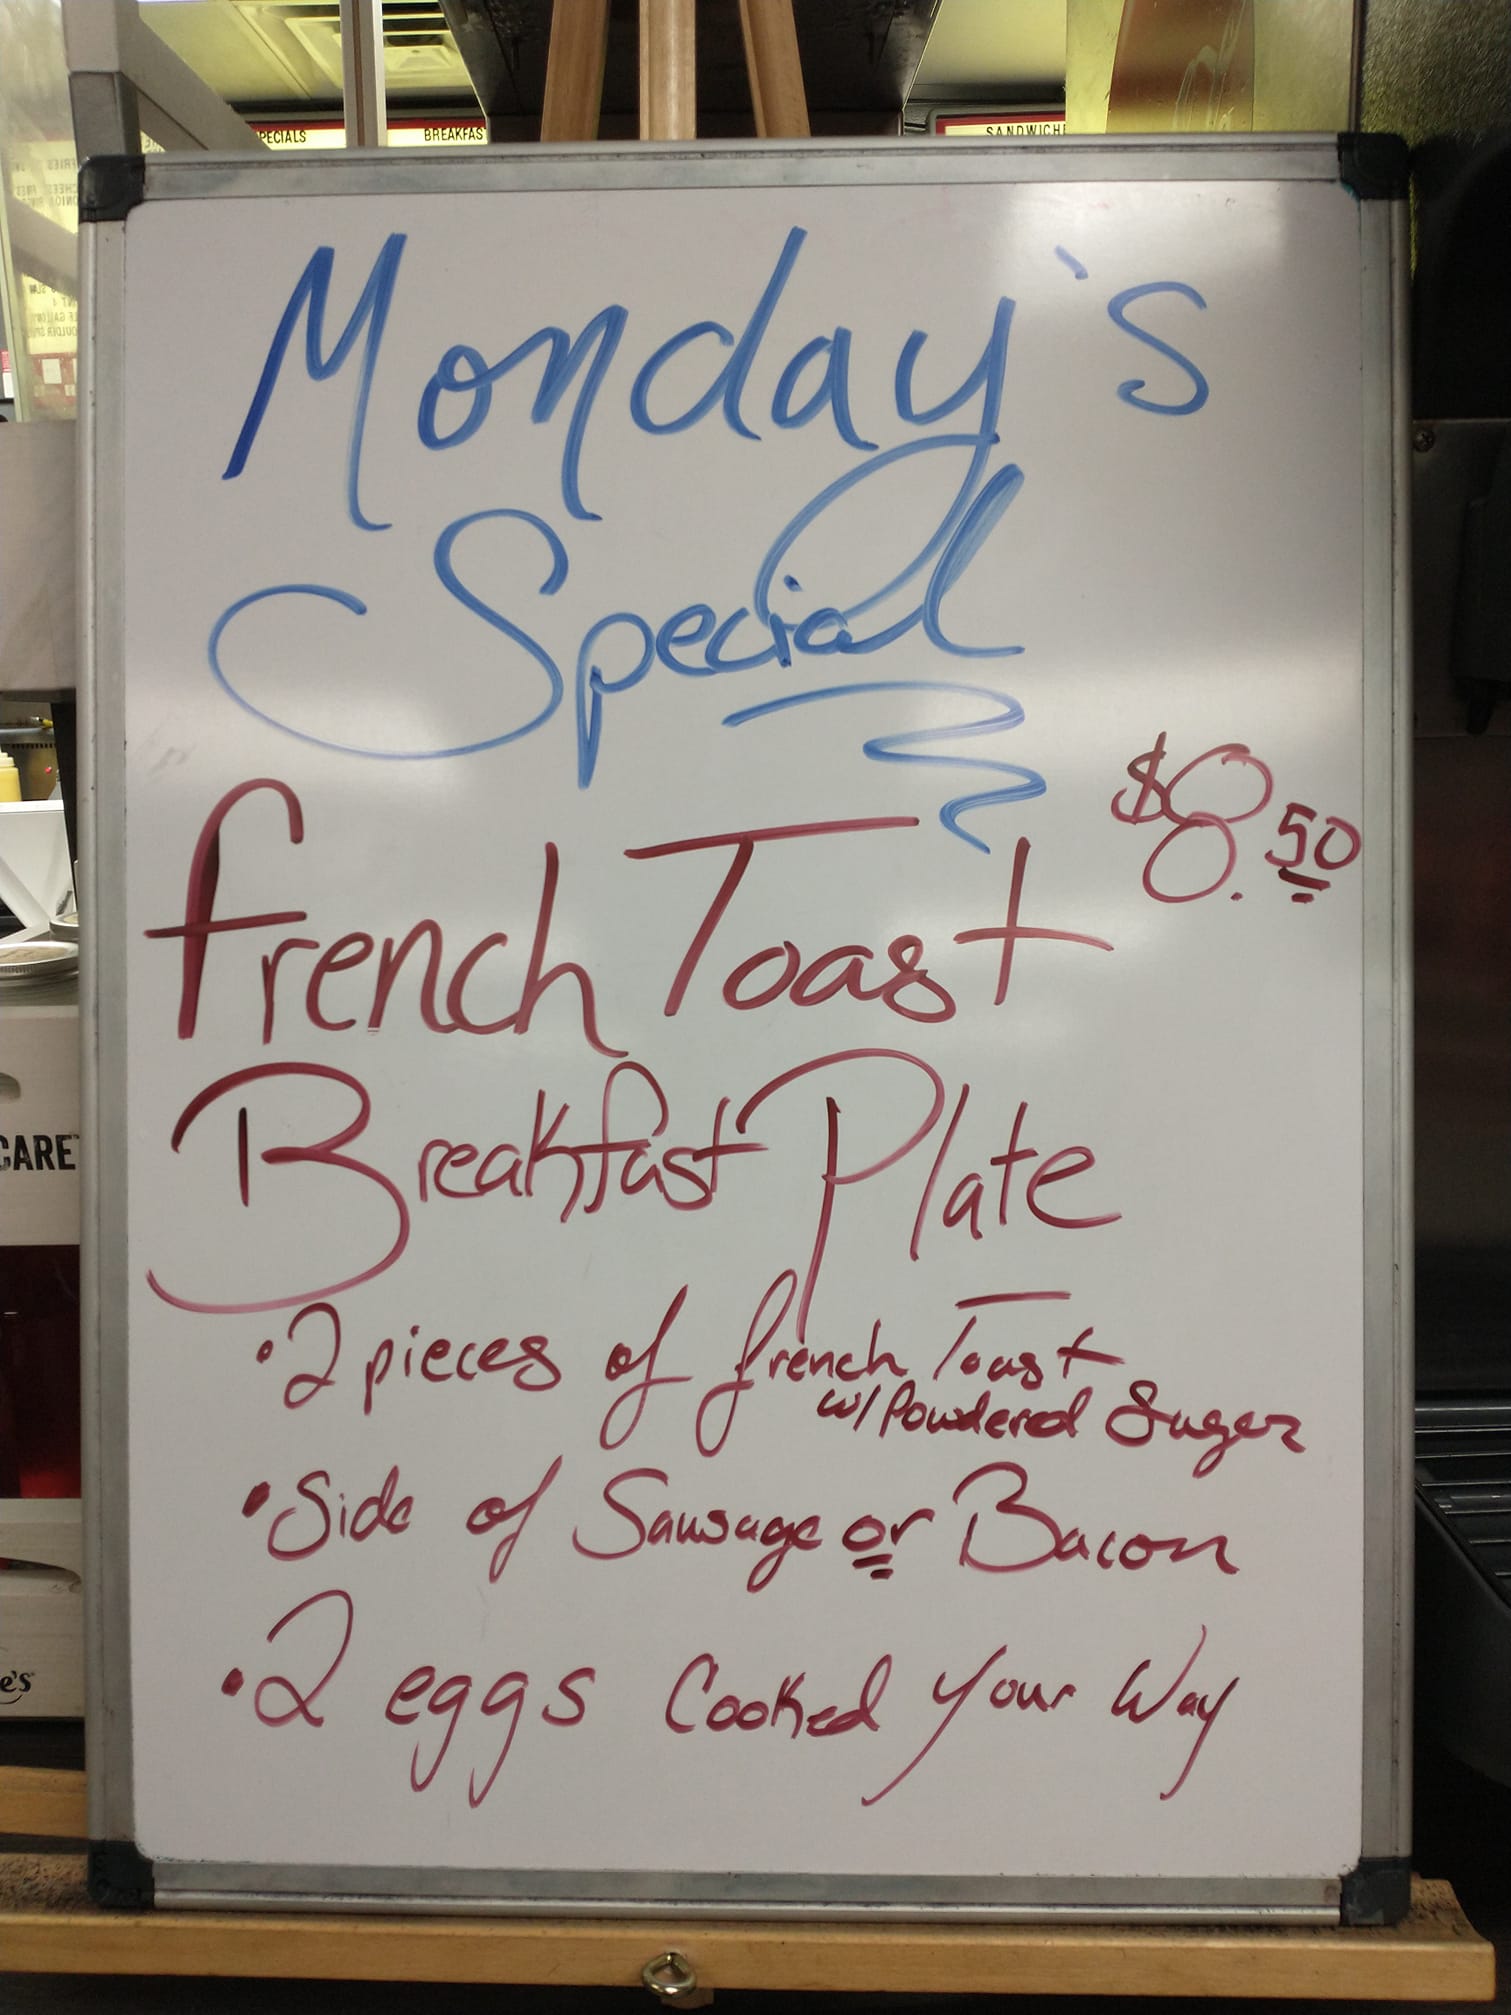 PECIALS
BREAKFAS
SANDWICHE
Monday's
Special
$8.50
French Toast
Breakfast Plate
• 2 pieces of French Toast
w/ Powdered Sugar
• Side of Sausage or Bacon
• 2 eggs Cooked Your Way
CARE
e's